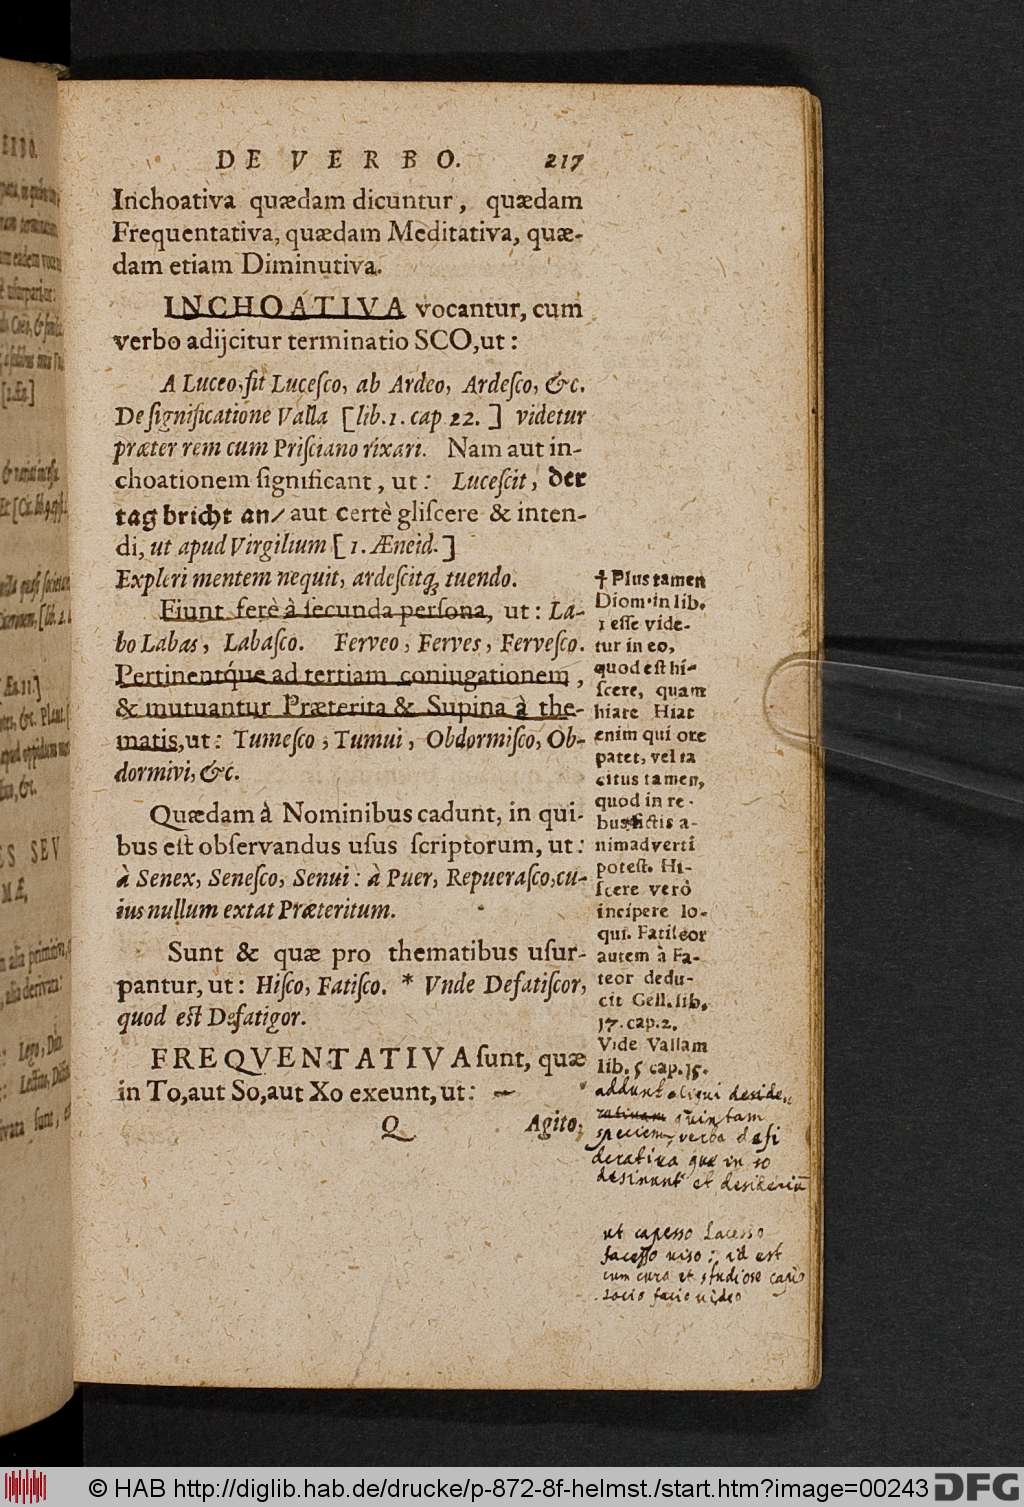 DE VERBO. 217
Inchoativa quædam dicuntur, quædam
Frequentativa, quædam Meditativa, quæ-
dam etiam Diminutiva.
INCHOATIVA vocantur, cum
verbo adijcitur terminatio SCO, ut:
A Luceo, fit Luceſco, ab Ardeo, Ardeſco, &c.
De ſignificatione Valla [lib. 1. cap 22.] videtur
præter rem cum Priſciano rixari. Nam aut in-
choationem ſignificant, ut: Luceſcit, der
tag bricht an/ aut certè gliſcere & inten-
di, ut apud Virgilium [1. Æneid.]
Expleri mentem nequit, ardeſcitq; tuendo.
Fiunt ferè à ſecunda perſona, ut: La-
bo Labas, Labaſco. Ferveo, Ferves, Ferveſco.
Pertinentq́ue ad tertiam coniugationem,
& mutuantur Præterita & Supina à the-
matis, ut: Tumeſco, Tumui, Obdormiſco, Ob-
dormivi, &c.
Quædam à Nominibus cadunt, in qui-
bus eſt obſervandus uſus ſcriptorum, ut:
à Senex, Seneſco, Senui: à Puer, Repueraſco, cu-
ius nullum extat Præteritum.
Sunt & quæ pro thematibus uſur-
pantur, ut: Hiſco, Fatiſco. * Vnde Defatiſcor,
quod eſt Defatigor.
FREQVENTATIVA ſunt, quæ
in To, aut So, aut Xo exeunt, ut:
Q Agito,
† Plus tamen
Diom. in lib.
1 eſſe vide-
tur in eo,
quod eſt hi-
ſcere, quam
hiare Hiat
enim qui ore
patet, vel ta
citus tamen,
quod in re-
bus fictis a-
nimadverti
poteſt. Hi-
ſcere verò
incipere lo-
qui. Fatiſcor
autem à Fa-
teor dedu-
cit Gell. lib.
17. cap. 2.
Vide Vallam
lib. 5 cap. 15.
addunt aliqui deside
quintam
speciem, verba desi
derativa quæ in so
desinunt et
ut capesso Lacesso
facesso viso: id est
cum cura et studiose capio
facio video
© HAB http://diglib.hab.de/drucke/p-872-8f-helmst./start.htm?image=00243 DFG